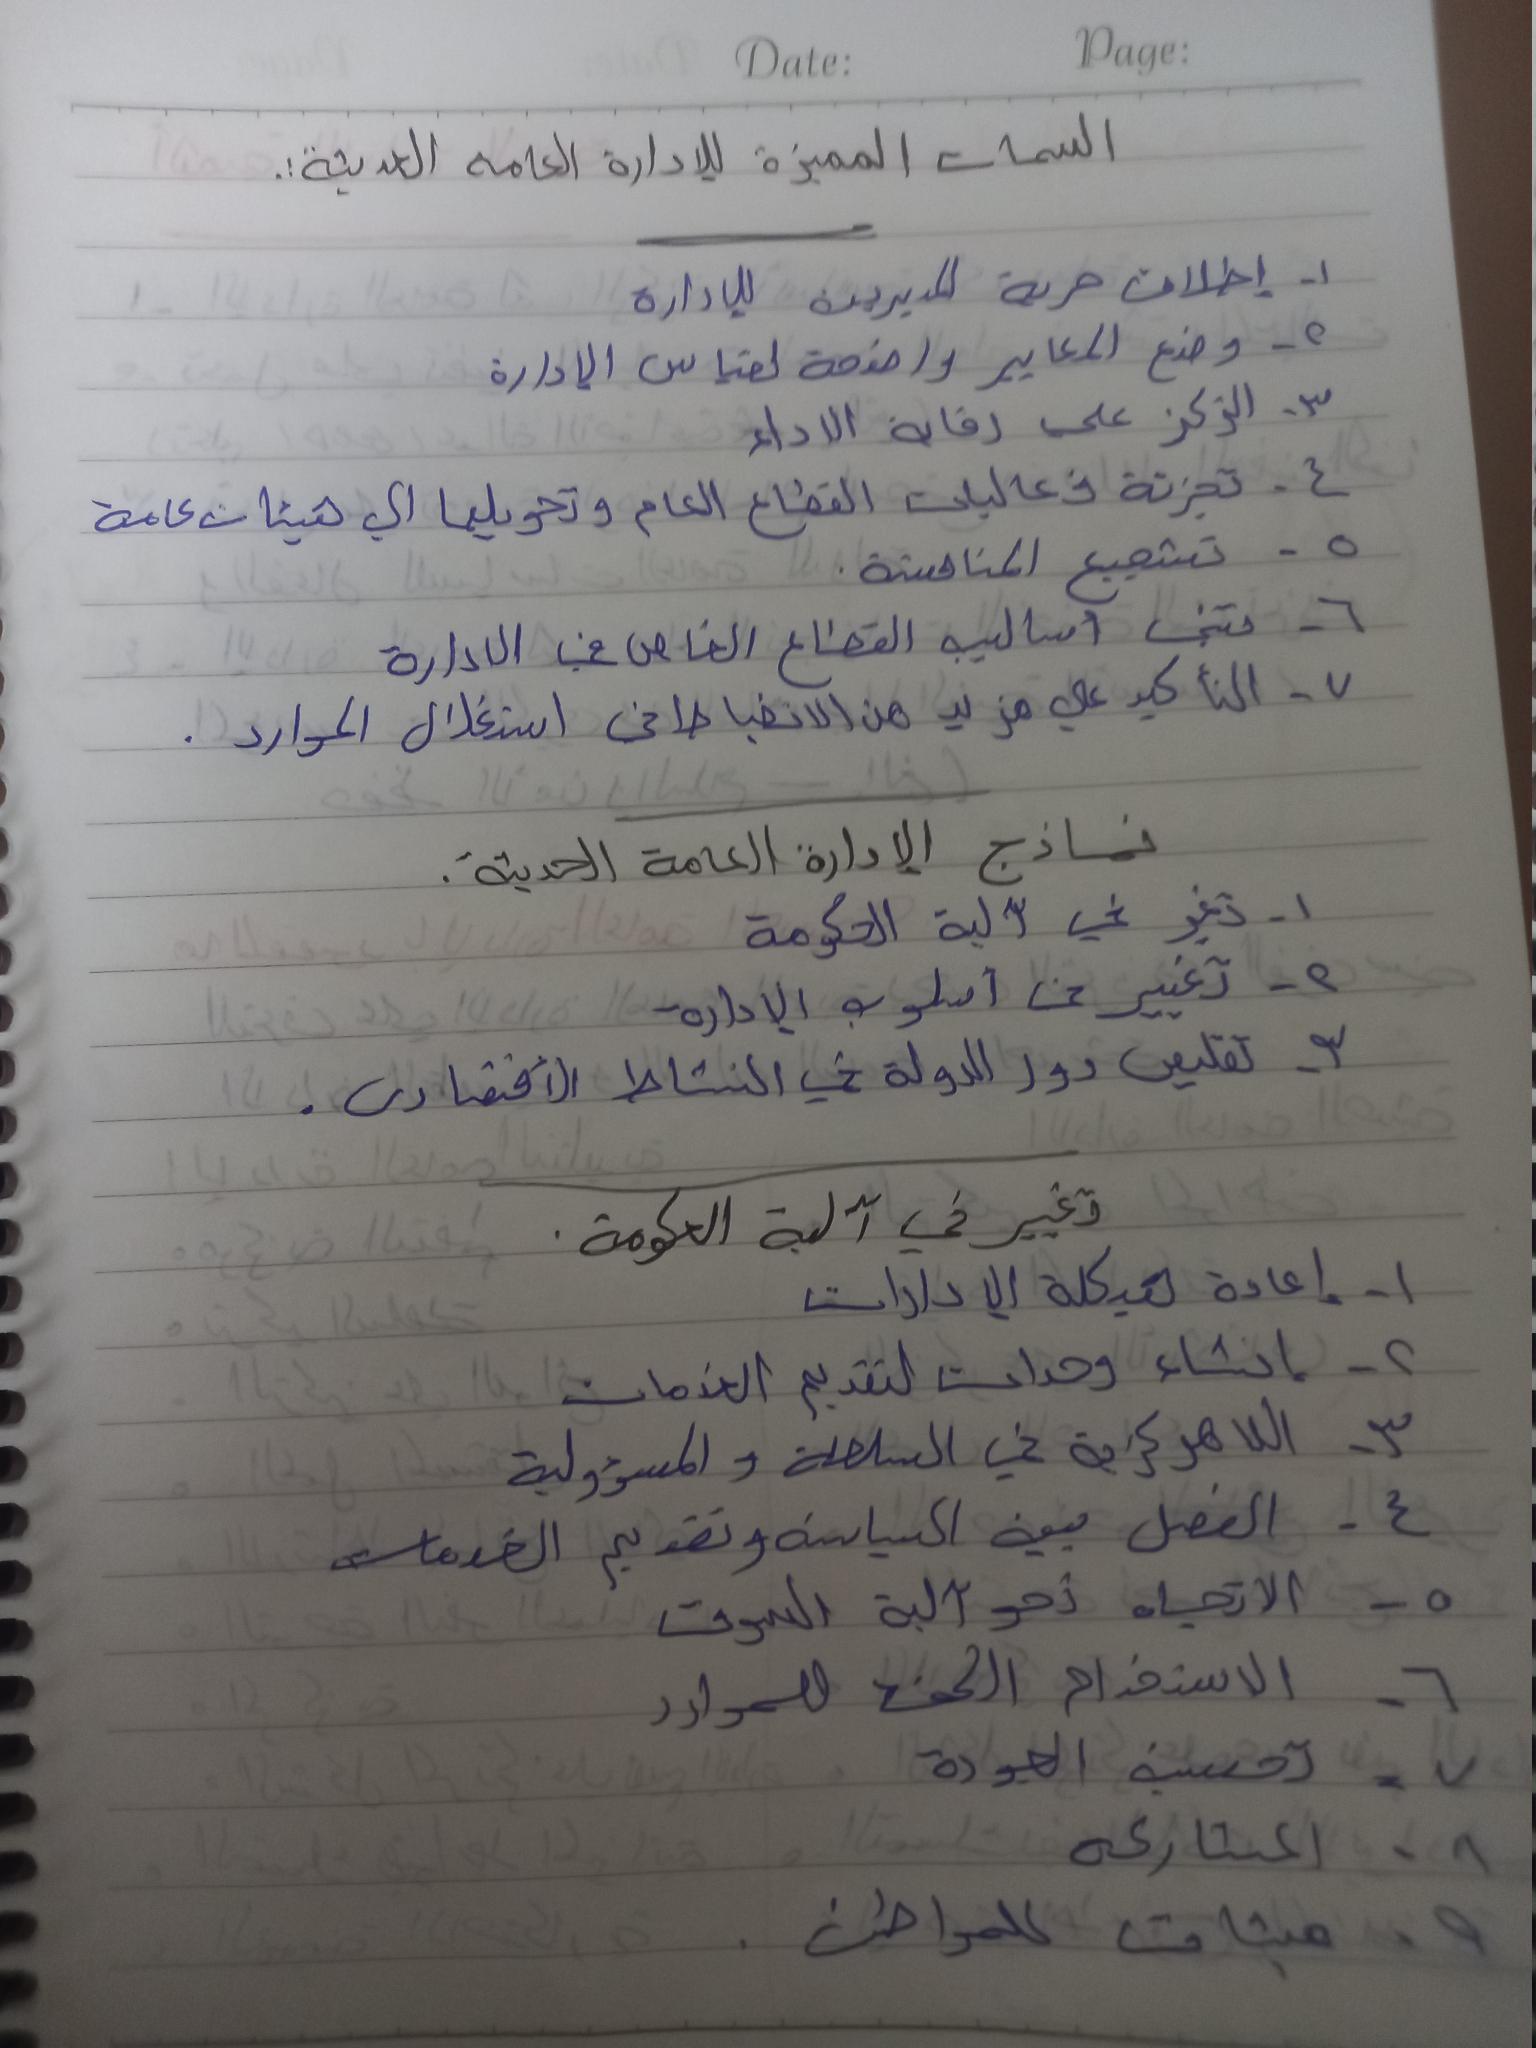 Date: Page:
السمات المميزة للإدارة العامه الحديثة:.
١- إطلاق حرية المديرين للإدارة
٢- وضع المعايير واضحة لقياس الإدارة
٣- التركز على رقابة الاداء
٤- تجزئة فعاليات القطاع العام وتحويلها الي هيئات عامة
٥- تشجيع المنافسة.
٦- تبني أساليب القطاع الخاص في الادارة
٧- التأكيد علي مزيد من الانضباط في استغلال الموارد.
نماذج الإدارة العامة الحديثة.
١- تغير في آلية الحكومة
٢- تغيير في أسلوب الإداره
٣- تقليص دور الدولة في النشاط الأقتصادى.
تغيير في آلية الحكومة.
١- إعادة هيكلة الإدارات
٢- إنشاء وحدات لتقديم الخدمات
٣- اللامركزية في السلطة والمسؤولية
٤- الفصل بين السياسة وتقديم الخدمات
٥- الاتجاه نحو آلية السوق
٦- الاستخدام للموارد
٧- تحسين الجودة
٨- المشاركه
٩- ميثاق للمواطن.